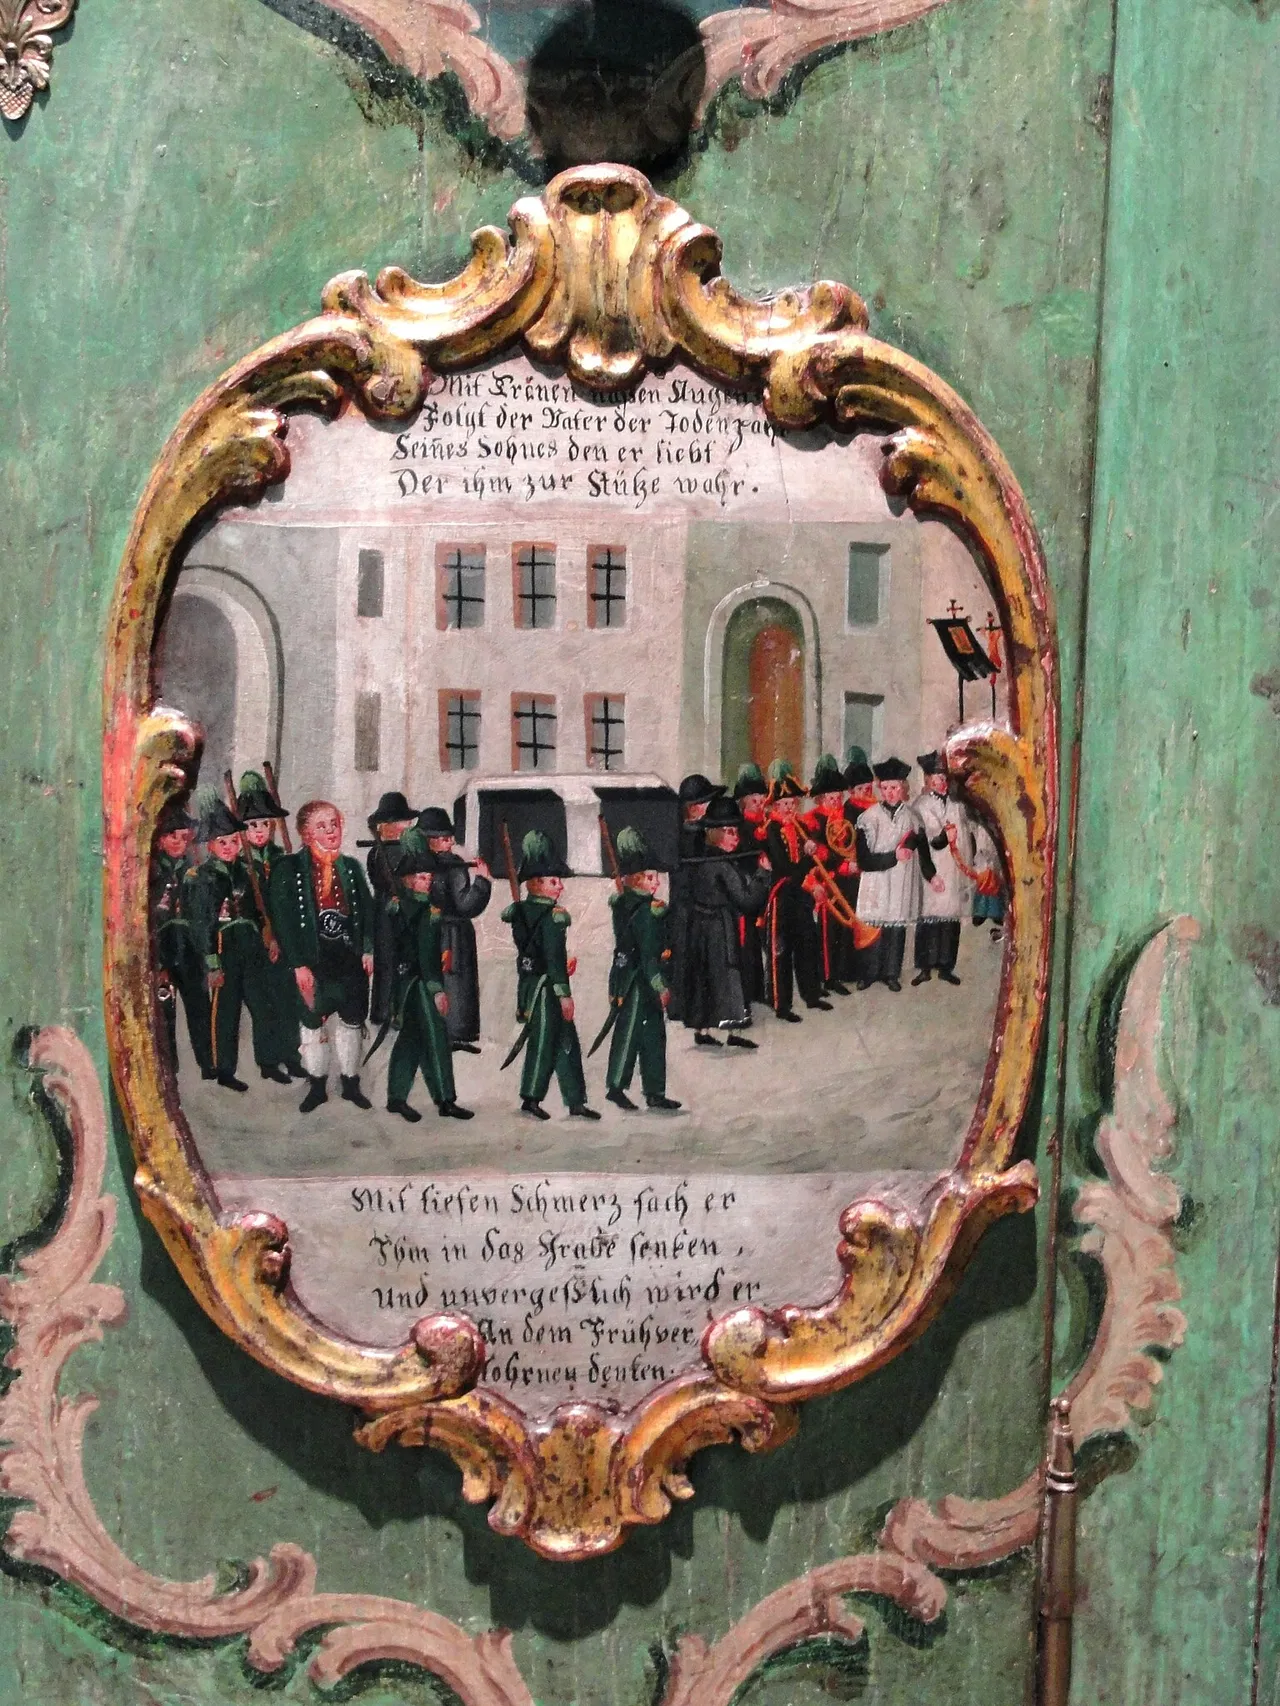 Mit Tränen naßen Augen
Folgt der Vater der Toden
Seines Sohnes den er liebt,
Der ihm zur Stütze wahr.
Mit tiefen Schmerz sach er
Ihm in das Grabe senken,
und unvergeßlich wird er
An dem Frühver„
lohrnen denken.